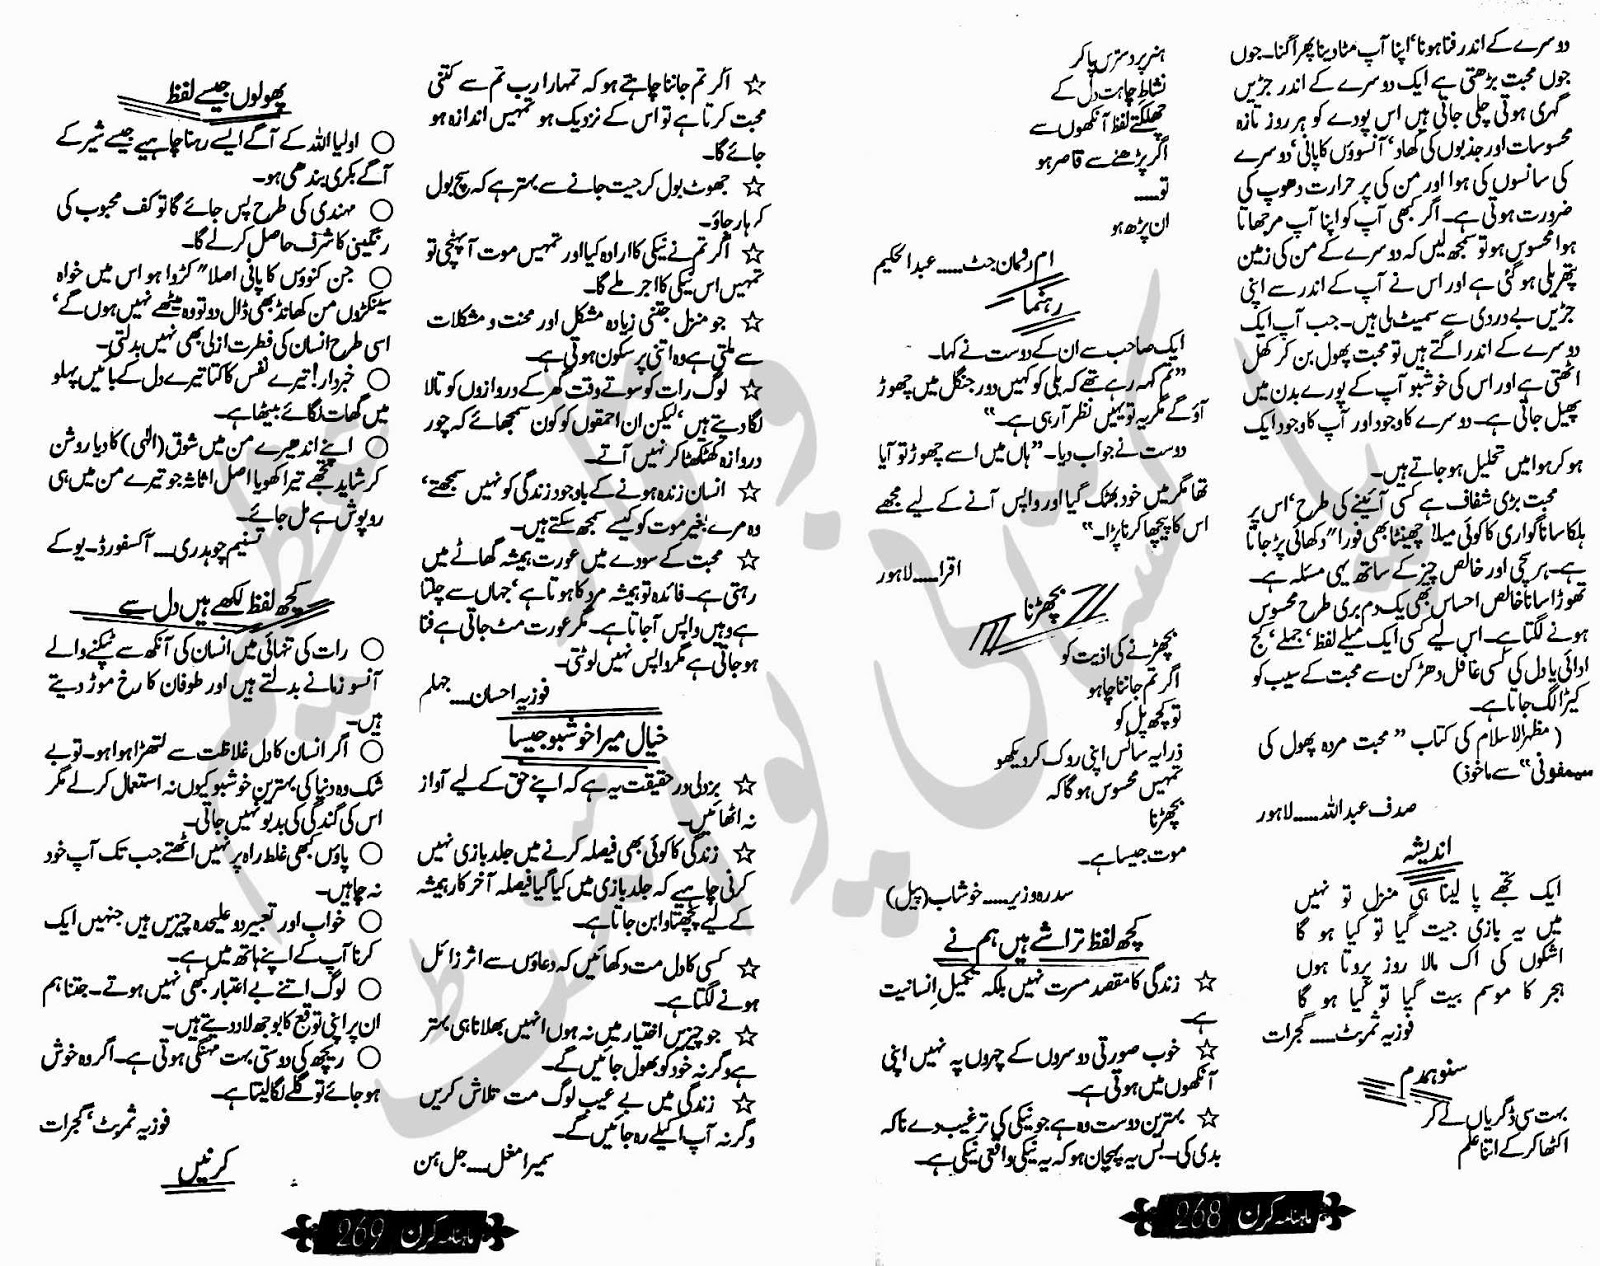 دوسرے کے اندر فنا ہونا‘ اپنا آپ مٹا دینا پھر اگنا۔ جوں
جوں محبت بڑھتی ہے ایک دوسرے کے اندر جڑیں
گہری ہوتی چلی جاتی ہیں اس پودے کو ہر روز تازہ
محسوسات اور جذبوں کی کھاد‘ آنسوؤں کا پانی‘ دوسرے
کی سانسوں کی ہوا اور من کی پر حرارت دھوپ کی
ضرورت ہوتی ہے۔ اگر کبھی آپ کو اپنا آپ مرجھاتا
ہوا محسوس ہو تو سمجھ لیں کہ دوسرے کے من کی زمین
پتھریلی ہو گئی ہے اور اس نے آپ کے اندر سے اپنی
جڑیں بے دردی سے سمیٹ لی ہیں۔ جب آپ ایک
دوسرے کے اندر اگتے ہیں تو محبت پھول بن کر کھل
اٹھتی ہے اور اس کی خوشبو آپ کے پورے بدن میں
پھیل جاتی ہے۔ دوسرے کا وجود اور آپ کا وجود ایک
ہو کر ہوا میں تحلیل ہو جاتے ہیں۔
محبت بڑی شفاف ہے کسی آئینے کی طرح‘ اس پر
ہلکا سا ناگواری کا کوئی میلا چھینٹا بھی فورا" دکھائی پڑ جاتا
ہے۔ ہر سچی اور خالص چیز کے ساتھ یہی مسئلہ ہے۔
تھوڑا سا نا خالص احساس بھی یک دم بری طرح محسوس
ہونے لگتا ہے۔ اس لیے کسی ایک میلے لفظ‘ جملے‘ کج
ادائی یا دل کی کسی غافل دھڑکن سے محبت کے سیب کو
کیڑا لگ جاتا ہے۔
(مظہر الاسلام کی کتاب ”محبت مردہ پھول کی
سمفونی“ سے ماخوذ)
صدف عبداللہ۔۔۔۔ لاہور
اندیشہ
ایک تجھے پا لینا ہی منزل تو نہیں
میں یہ بازی جیت گیا تو کیا ہو گا
اشکوں کی اک مالا روز پروتا ہوں
ہجر کا موسم بیت گیا تو کیا ہو گا
فوزیہ ثمربٹ۔۔۔۔ گجرات
سنو ہمدم
بہت سی ڈگریاں لے کر
اکٹھا کر کے اتنا علم
ہنر پر دسترس پا کر
نشاطِ چاہت دل کے
چھلکتے لفظ آنکھوں سے
اگر پڑھنے سے قاصر ہو
تو۔۔۔۔
ان پڑھ ہو
ام رومان جٹ۔۔۔۔ عبدالحکیم
رہنما
ایک صاحب سے ان کے دوست نے کہا۔
”تم کہہ رہے تھے کہ بلی کو کہیں دور جنگل میں چھوڑ
آؤ گے مگر یہ تو یہیں نظر آ رہی ہے۔“
دوست نے جواب دیا۔ ”ہاں میں اسے چھوڑ تو آیا
تھا مگر میں خود بھٹک گیا اور واپس آنے کے لیے مجھے
اس کا پیچھا کرنا پڑا۔“
اقرا۔۔۔۔ لاہور
بچھڑنا
بچھڑنے کی اذیت کو
اگر تم جاننا چاہو
تو کچھ پل کو
ذرا یہ سانس اپنی روک کر دیکھو
تمہیں محسوس ہو گا کہ
بچھڑنا
موت جیسا ہے۔
سدرہ وزیر۔۔۔۔ خوشاب (پیل)
کچھ لفظ تراشے ہیں ہم نے
☆ زندگی کا مقصد مسرت نہیں بلکہ تکمیلِ انسانیت
ہے۔
☆ خوب صورتی دوسروں کے چہروں پہ نہیں اپنی
آنکھوں میں ہوتی ہے۔
☆ بہترین دوست وہ ہے جو نیکی کی ترغیب دے نا کہ
بدی کی۔ بس یہ پہچان ہو کہ یہ نیکی واقعی نیکی ہے۔
ماہنامہ کرن 268
☆ اگر تم جاننا چاہتے ہو کہ تمہارا رب تم سے کتنی
محبت کرتا ہے تو اس کے نزدیک ہو تمہیں اندازہ ہو
جائے گا۔
☆ جھوٹ بول کر جیت جانے سے بہتر ہے کہ سچ بول
کہ ہار جاؤ۔
☆ اگر تم نے نیکی کا ارادہ کیا اور تمہیں موت آ پہنچی تو
تمہیں اس نیکی کا اجر ملے گا۔
☆ جو منزل جتنی زیادہ مشکل اور محنت و مشکلات
سے ملتی ہے وہ اتنی پر سکون ہوتی ہے۔
☆ لوگ رات کو سوتے وقت گھر کے دروازوں کو تالا
لگا دیتے ہیں‘ لیکن ان احمقوں کو کون سمجھائے کہ چور
دروازہ کھٹکھٹا کر نہیں آتے۔
☆ انسان زندہ ہونے کے باوجود زندگی کو نہیں سمجھتے‘
وہ مرے بغیر موت کو کیسے سمجھ سکتے ہیں۔
☆ محبت کے سودے میں عورت ہمیشہ گھاٹے میں
رہتی ہے۔ فائدہ تو ہمیشہ مرد کا ہوتا ہے‘ جہاں سے چلتا
ہے وہیں واپس آ جاتا ہے۔ مگر عورت مٹ جاتی ہے فنا
ہو جاتی ہے مگر واپس نہیں لوٹتی۔
فوزیہ احسان۔۔۔۔ جہلم
خیال میرا خوشبو جیسا
☆ بزدلی در حقیقت یہ ہے کہ اپنے حق کے لیے آواز
نہ اٹھائیں۔
☆ زندگی کا کوئی بھی فیصلہ کرنے میں جلد بازی نہیں
کرنی چاہیے کہ جلد بازی میں کیا گیا فیصلہ آخر کار ہمیشہ
کے لیے پچھتاوا بن جاتا ہے۔
☆ کسی کا دل مت دکھائیں کہ دعاؤں سے اثر زائل
ہونے لگتا ہے۔
☆ جو چیزیں اختیار میں نہ ہوں انہیں بھلانا ہی بہتر
ہے وگرنہ خود کو بھول جائیں گے۔
☆ زندگی میں بے عیب لوگ مت تلاش کریں
وگرنہ آپ اکیلے رہ جائیں گے۔
سمیرا مغل۔۔۔۔ جل ہن
پھولوں جیسے لفظ
○ اولیا اللہ کے آگے ایسے رہنا چاہیے جیسے شیر کے
آگے بکری بندھی ہو۔
○ مہندی کی طرح پس جائے گا تو کف محبوب کی
رنگینی کا شرف حاصل کرلے گا۔
○ جن کنوؤں کا پانی اصلا" کڑوا ہو اس میں خواہ
سینکڑوں من کھانڈ بھی ڈال دو تو وہ میٹھے نہیں ہوں گے‘
اسی طرح انسان کی فطرت ازلی بھی نہیں بدلتی۔
○ خبردار! تیرے نفس کا کتا تیرے دل کے بائیں پہلو
میں گھات لگائے بیٹھا ہے۔
○ اپنے اندھیرے من میں شوق (الٰہی) کا دیا روشن
کر شاید تجھے تیرا کھویا اصل اثاثہ جو تیرے من میں ہی
روپوش ہے مل جائے۔
تسنیم چوہدری۔۔۔۔ آکسفورڈ۔ یو کے
کچھ لفظ لکھے ہیں دل سے
○ رات کی تنہائی میں انسان کی آنکھ سے ٹپکنے والے
آنسو زمانے بدلتے ہیں اور طوفان کا رخ موڑ دیتے
ہیں۔
○ اگر انسان کا دل غلاظت سے لتھڑا ہوا ہو۔ تو بے
شک وہ دنیا کی بہترین خوشبو کیوں نہ استعمال کرلے مگر
اس کی گندگی کی بدبو نہیں جاتی۔
○ پاؤں کبھی غلط راہ پر نہیں اٹھتے جب تک آپ خود
نہ چاہیں۔
○ خواب اور تعبیر دو علیحدہ چیزیں ہیں جنہیں ایک
کرنا آپ کے اپنے ہاتھ میں ہے۔
○ لوگ اتنے بے اعتبار کبھی نہیں ہوتے۔ جتنا ہم
ان پر اپنی توقع کا بوجھ لاد دیتے ہیں۔
○ ریچھ کی دوستی بہت مہنگی ہوتی ہے۔ اگر وہ خوش
ہو جائے تو گلے لگا لیتا ہے۔
فوزیہ ثمربٹ‘ گجرات
کرنیں
ماہنامہ کرن 269